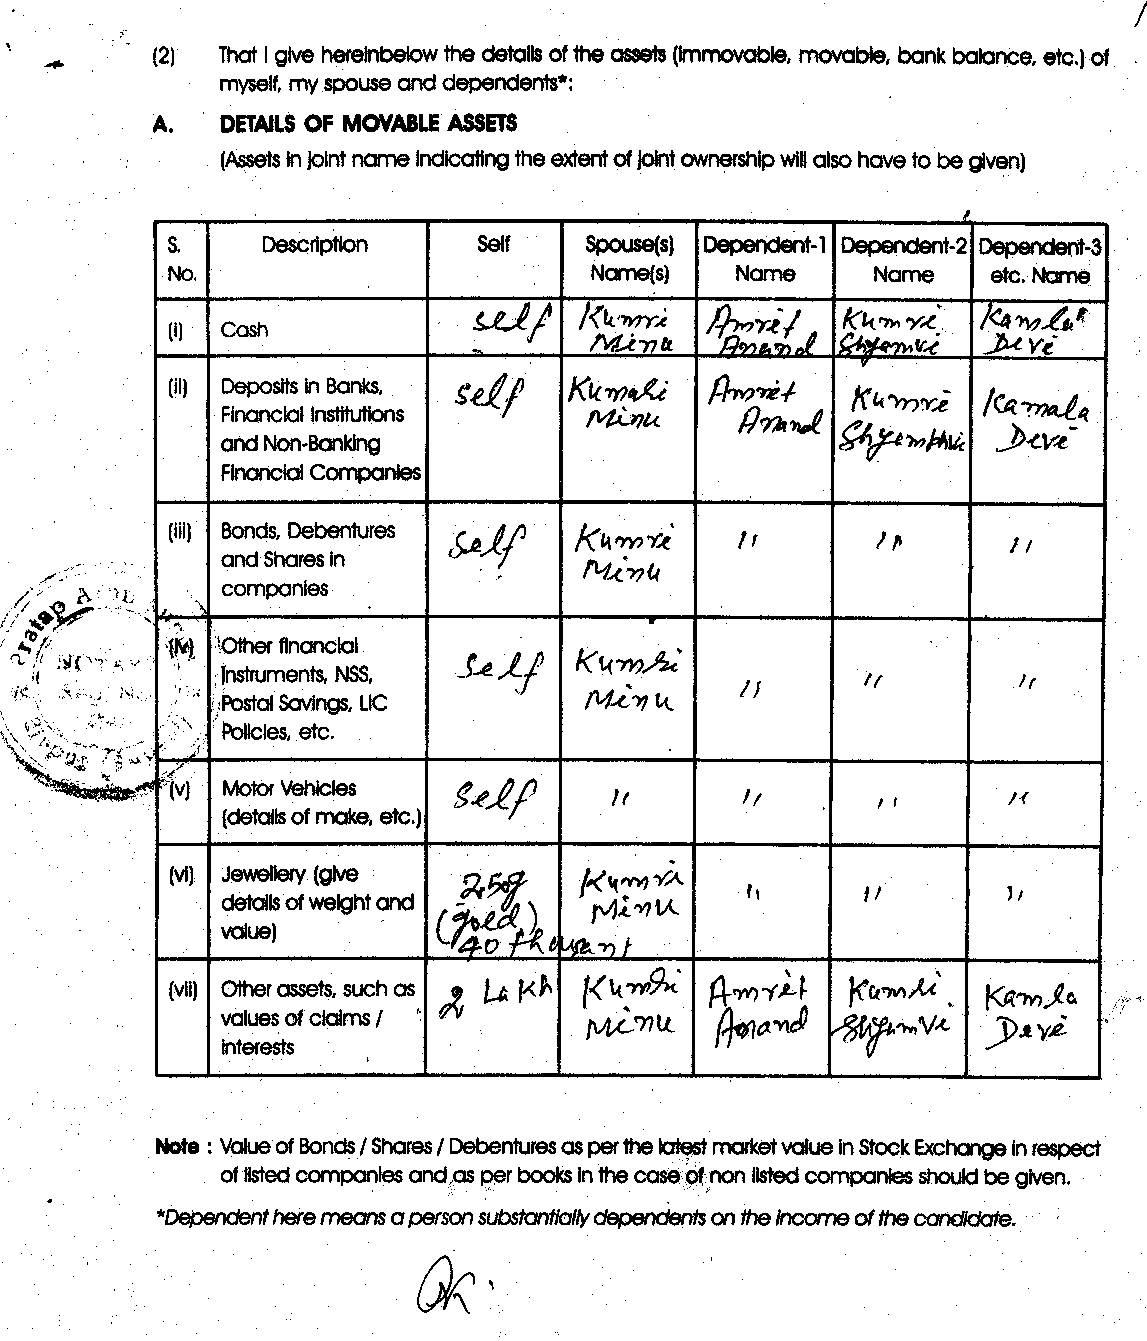 (2) That I give hereinbelow the details of the assets (immovable, movable, bank balance, etc.) of
myself, my spouse and dependents*:
A. DETAILS OF MOVABLE ASSETS
(Assets in joint name indicating the extent of joint ownership will also have to be given)
S. No. Description Self Spouse(s) Name(s) Dependent-1 Name Dependent-2 Name Dependent-3 etc. Name
(i) Cash self Kumri Minu Amrit Anand Kumri Kamla Devi
(ii) Deposits in Banks, self Kumari Minu Amrit Anand Kumri Kamala Devi
Financial Institutions
and Non-Banking
Financial Companies
(iii) Bonds, Debentures self Kumri Minu " " "
and Shares in
companies
(iv) Other financial self Kumri Minu " " "
Instruments, NSS,
Postal Savings, LIC
Policies, etc.
(v) Motor Vehicles self " " " "
(details of make, etc.)
(vi) Jewellery (give (gold) 40 thousant Kumri Minu " " "
details of weight and
value)
(vii) Other assets, such as 2 Lakh Kumri Minu Amrit Anand Kumri Kamla Devi
values of claims /
interests
Note : Value of Bonds / Shares / Debentures as per the latest market value in Stock Exchange in respect
of listed companies and as per books in the case of non listed companies should be given.
*Dependent here means a person substantially dependents on the income of the candidate.
Pratap
NOTARY